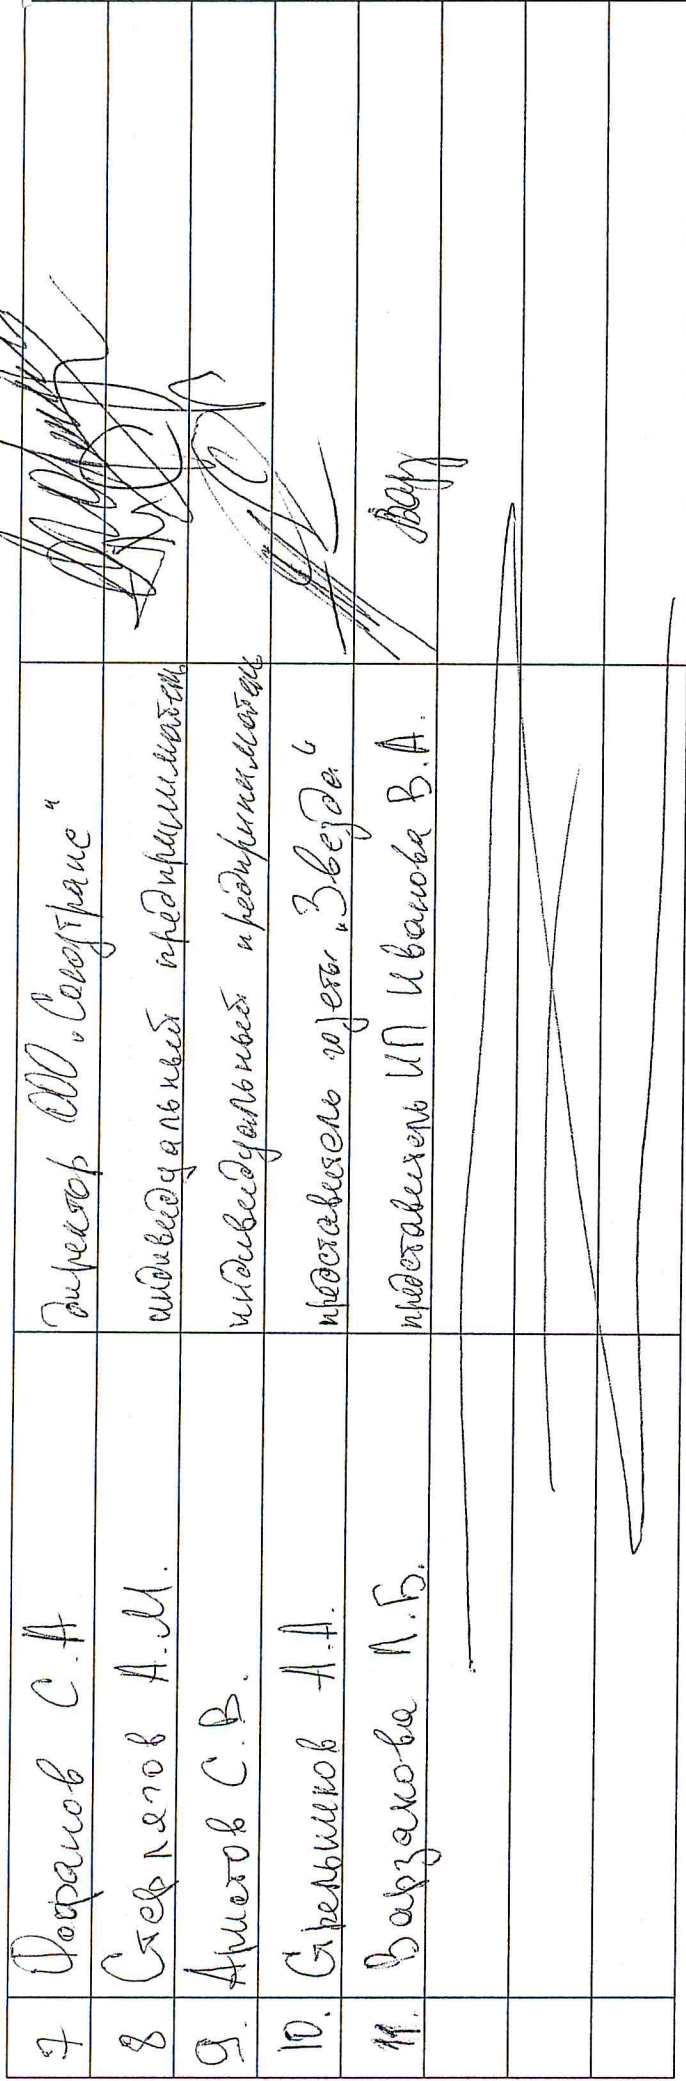 7 Фофанов С.А директор ООО „Союзтранс"
8 А.М. индивидуальный предприниматель
9. Арметов С.В. индивидуальный предприниматель
10. Стрельников А.А. представитель газеты „Звезда"
11. Варзакова Л.Б. представитель ИП Иванова В.А. Варз